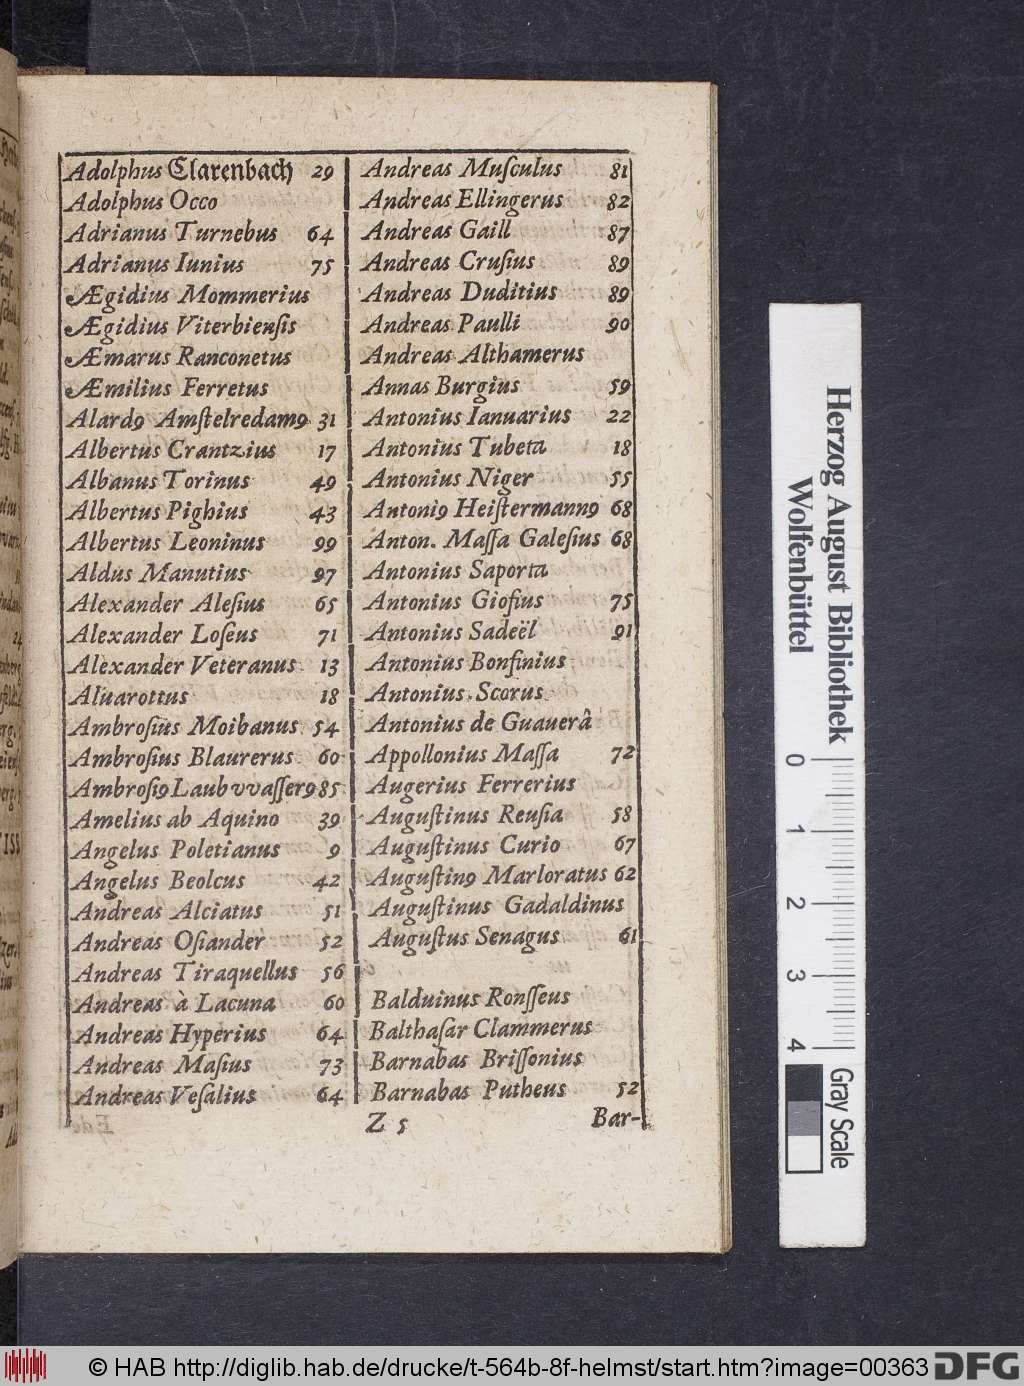 Adolphus Clarenbach 29
Adolphus Occo
Adrianus Turnebus 64
Adrianus Iunius 75
Ægidius Mommerius
Ægidius Viterbienſis
Æmarus Ranconetus
Æmilius Ferretus
Alardꝰ Amſtelredamꝰ 31
Albertus Crantzius 17
Albanus Torinus 49
Albertus Pighius 43
Albertus Leoninus 99
Aldus Manutius 97
Alexander Aleſius 65
Alexander Loſeus 71
Alexander Veteranus 13
Aluarottus 18
Ambroſius Moibanus 54
Ambroſius Blaurerus 60
Ambroſiꝰ Laubvvaſſerꝰ 85
Amelius ab Aquino 39
Angelus Poletianus 9
Angelus Beolcus 42
Andreas Alciatus 51
Andreas Oſiander 52
Andreas Tiraquellus 56
Andreas à Lacuna 60
Andreas Hyperius 64
Andreas Maſius 73
Andreas Veſalius 64
Andreas Muſculus 81
Andreas Ellingerus 82
Andreas Gaill 87
Andreas Cruſius 89
Andreas Duditius 89
Andreas Paulli 90
Andreas Althamerus
Annas Burgius 59
Antonius Ianuarius 22
Antonius Tubeta 18
Antonius Niger 55
Antoniꝰ Heiſtermannꝰ 68
Anton. Maſſa Galeſius 68
Antonius Saporta
Antonius Gioſius 75
Antonius Sadeël 91
Antonius Bonfinius
Antonius Scorus
Antonius de Guauerâ
Appollonius Maſſa 72
Augerius Ferrerius
Auguſtinus Reuſia 58
Auguſtinus Curio 67
Auguſtinꝰ Marloratus 62
Auguſtinus Gadaldinus
Auguſtus Senagus 61
Balduinus Ronſſeus
Balthaſar Clammerus
Barnabas Briſſonius
Barnabas Putheus 52
Z 5 Bar-
Herzog August Bibliothek
Wolfenbüttel
0 1 2 3 4
Gray Scale
© HAB http://diglib.hab.de/drucke/t-564b-8f-helmst/start.htm?image=00363
DFG